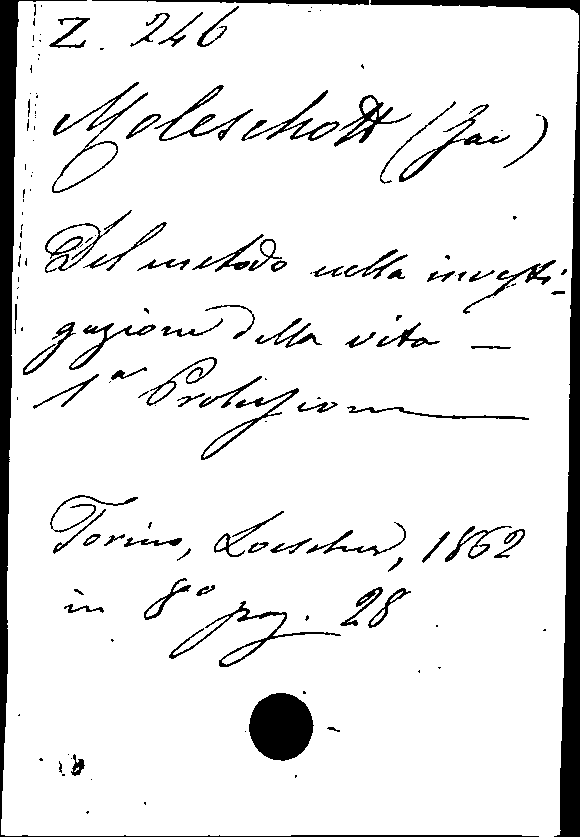 Z. 246
Moleschott (Jac)
Del metodo nella investi-
gazione della vita —
1ª Prolusione
Torino, Loescher, 1862
in 8° pag. 28